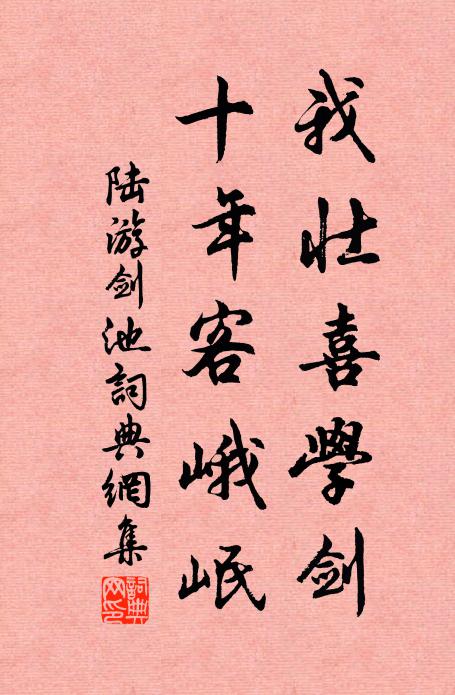 我壮喜學剑
十年客峨岷
陆游剑池詞典網集
詞典网印